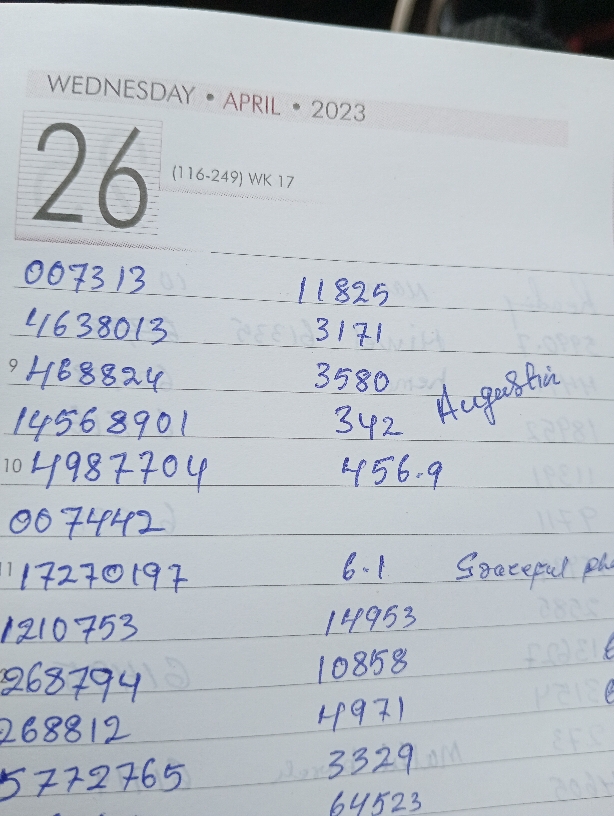 WEDNESDAY • APRIL • 2023
26
(116-249) WK 17
007313 11825
4638013 3171
9 468824 3580 Augustin
14568901 342
10 4987704 456.9
007442
11 17270197 6.1 Graceful
1210753 14953
268794 10858
268812 4971
5772765 3329
64523